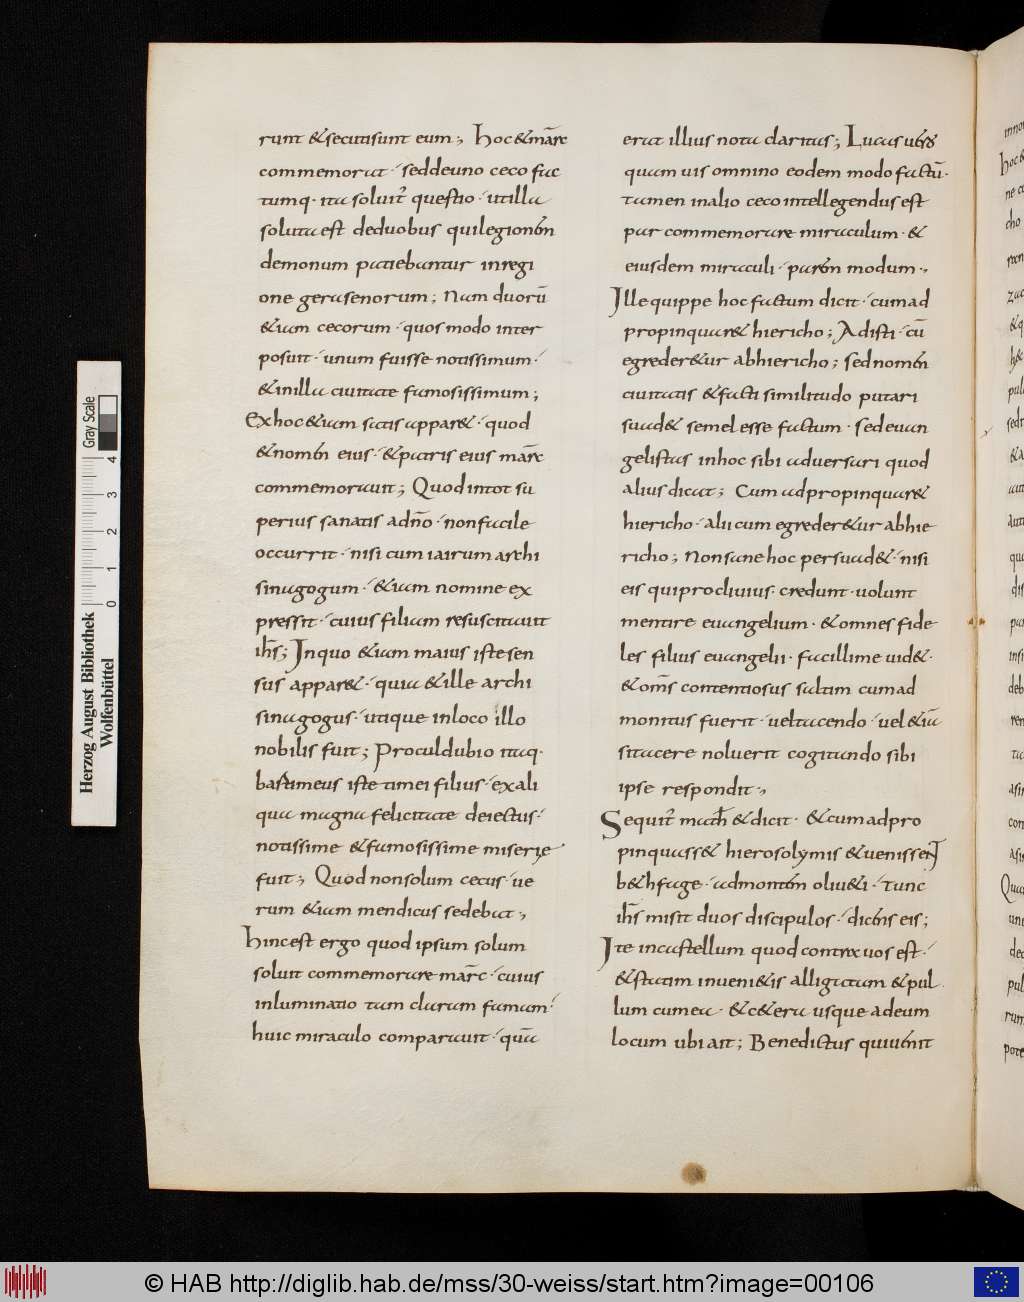 runt & secuti sunt eum; Hoc & marc̄
commemorat · sed de uno ceco fac
tum q · ita soluit̄ questio · ut illa
soluta est de duobus qui legionem
demonum patiebantur in regi
one gerasenorum; Nam duorū
&iam cecorum · quos modo inter
posuit · unum fuisse notissimum ·
& in illa ciuitate famosissimum;
Ex hoc &iam satis appar& · quod
& nomen eius · & patris eius marc̄
commemorauit; Quod in tot su
perius sanatis a dn̄o · non facile
occurrit · nisi cum iairum archi
sinagogum · &iam nomine ex
pressit · cuius filiam resuscitauit
ih̄s; In quo &iam maius iste sen
sus appar& · quia & ille archi
sinagogus · utique in loco illo
nobilis fuit; Procul dubio itaq·
bartimeus iste timei filius · ex ali
qua magna felicitate deiectus ·
notissime & famosissime miserie
fuit; Quod non solum cecus · ue
rum &iam mendicus sedebat ·,
hinc est ergo quod ipsum solum
soluit commemorare marc̄ · cuius
inluminatio tam claram famam
huic miraculo comparauit · quā
erat illius nota claritas; Lucas uero
quamuis omnino eodem modo factū ·
tamen in alio ceco intellegendus est
par commemorare miraculum · &
eiusdem miraculi · parem modum ·,
Ille quippe hoc factum dicit · cum ad
propinquar& hiericho; Adisti · cū
egreder&ur ab hiericho; sed nomen
ciuitatis & facti similitudo putari
suad& semel esse factum · sed euan
gelistas in hoc sibi aduersari quod
alius dicat; Cum adpropinquar&
hiericho · alii cum egreder&ur ab hie
richo; Non sane hoc persuad& · nisi
eis qui procliuius · credunt · uolunt
mentire euangelium · & omnes fide
les filius euangelii · facillime uid& ·
& om̄s contentiosus saltim cum ad
monitus fuerit · uel tacendo · uel &iā
si tacere noluerit cogitando sibi
ipse respondit ·,
Sequit̄ math̄ & dicit · & cum adpro
pinquass& hierosolymis & uenissent
b&hfage · ad montem oliu&i · Tunc
ih̄s misit duos discipulos · dicens eis;
Ite in castellum quod contra uos est ·
& statim inueni&is alligatam & pul
lum cum ea · & c&era usque ad eum
locum ubi ait; Benedictus qui uenit
Gray Scale
Herzog August Bibliothek
Wolfenbüttel
0 1 2 3 4
© HAB http://diglib.hab.de/mss/30-weiss/start.htm?image=00106